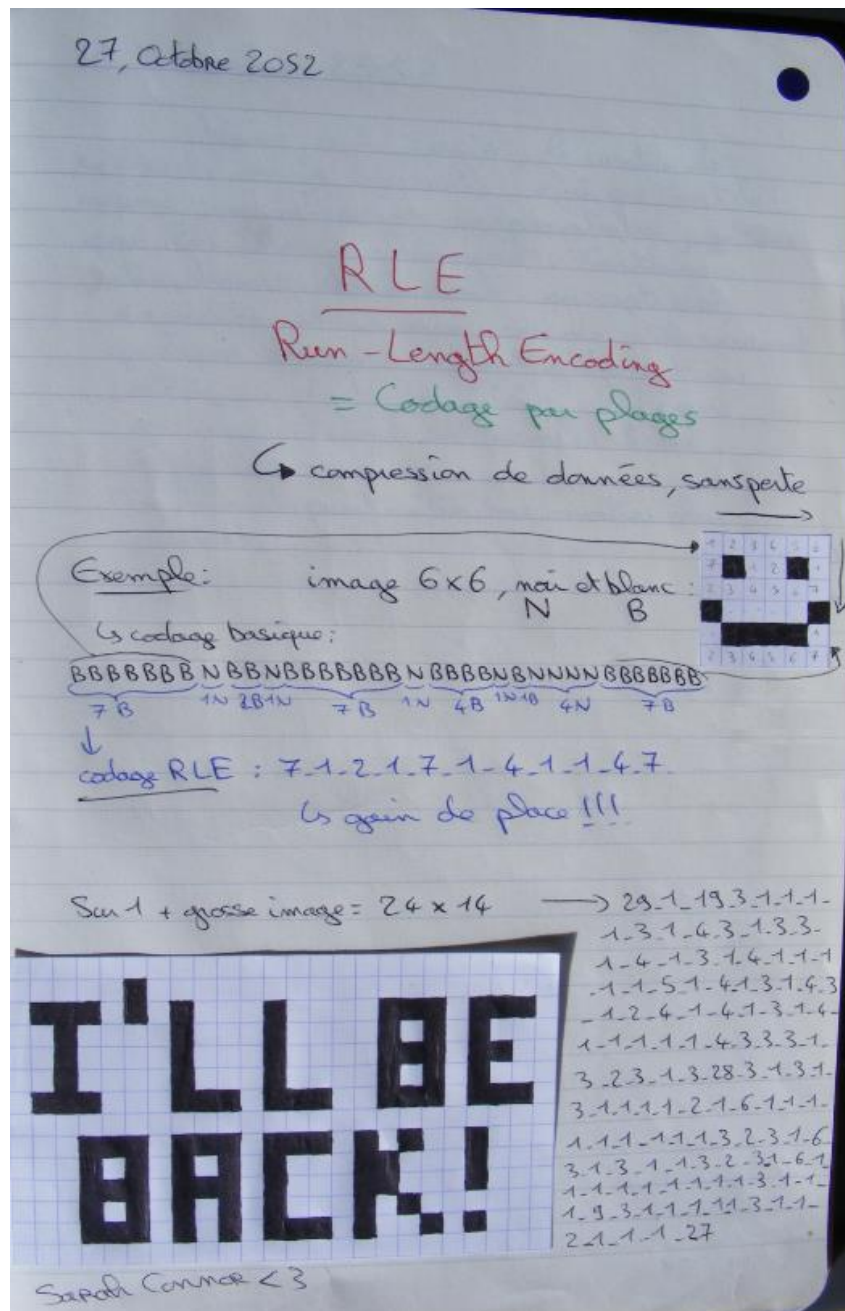 27, Octobre 2052
RLE
Run-Length Encoding
= Codage par plages
↳ compression de données, sans perte
Exemple: image 6x6, noir et blanc :
N B
↳ codage basique:
BBBBBBBNBBNBBBBBBBNBBBBNBNNNNBBBBBBB
7B 1N 2B 1N 7B 1N 4B 1N 1B 4N 7B
codage RLE : 7_1_2_1_7_1_4_1_1_4_7
↳ gain de place !!!
Sur 1 + grosse image = 24 x 14 → 29_1_19_3_1_1_1_
1_3_1_4_3_1_3_3_
1_4_1_3_1_4_1_1_1
_1_1_5_1_4_1_3_1_4_3
_1_2_4_1_4_1_3_1_4_
1_1_1_1_1_4_3_3_3_1_
3_2_3_1_3_28_3_1_3_1_
3_1_1_1_1_2_1_6_1_1_1_
1_1_1_1_1_1_3_2_3_1_6
3_1_3_1_1_3_2_3_1_6_1
1_1_1_1_1_1_1_1_3_1_1_
1_9_3_1_1_1_1_1_3_1_1_
2_1_1_1_27
I'LL BE
BACK!
Sarah Connor <3